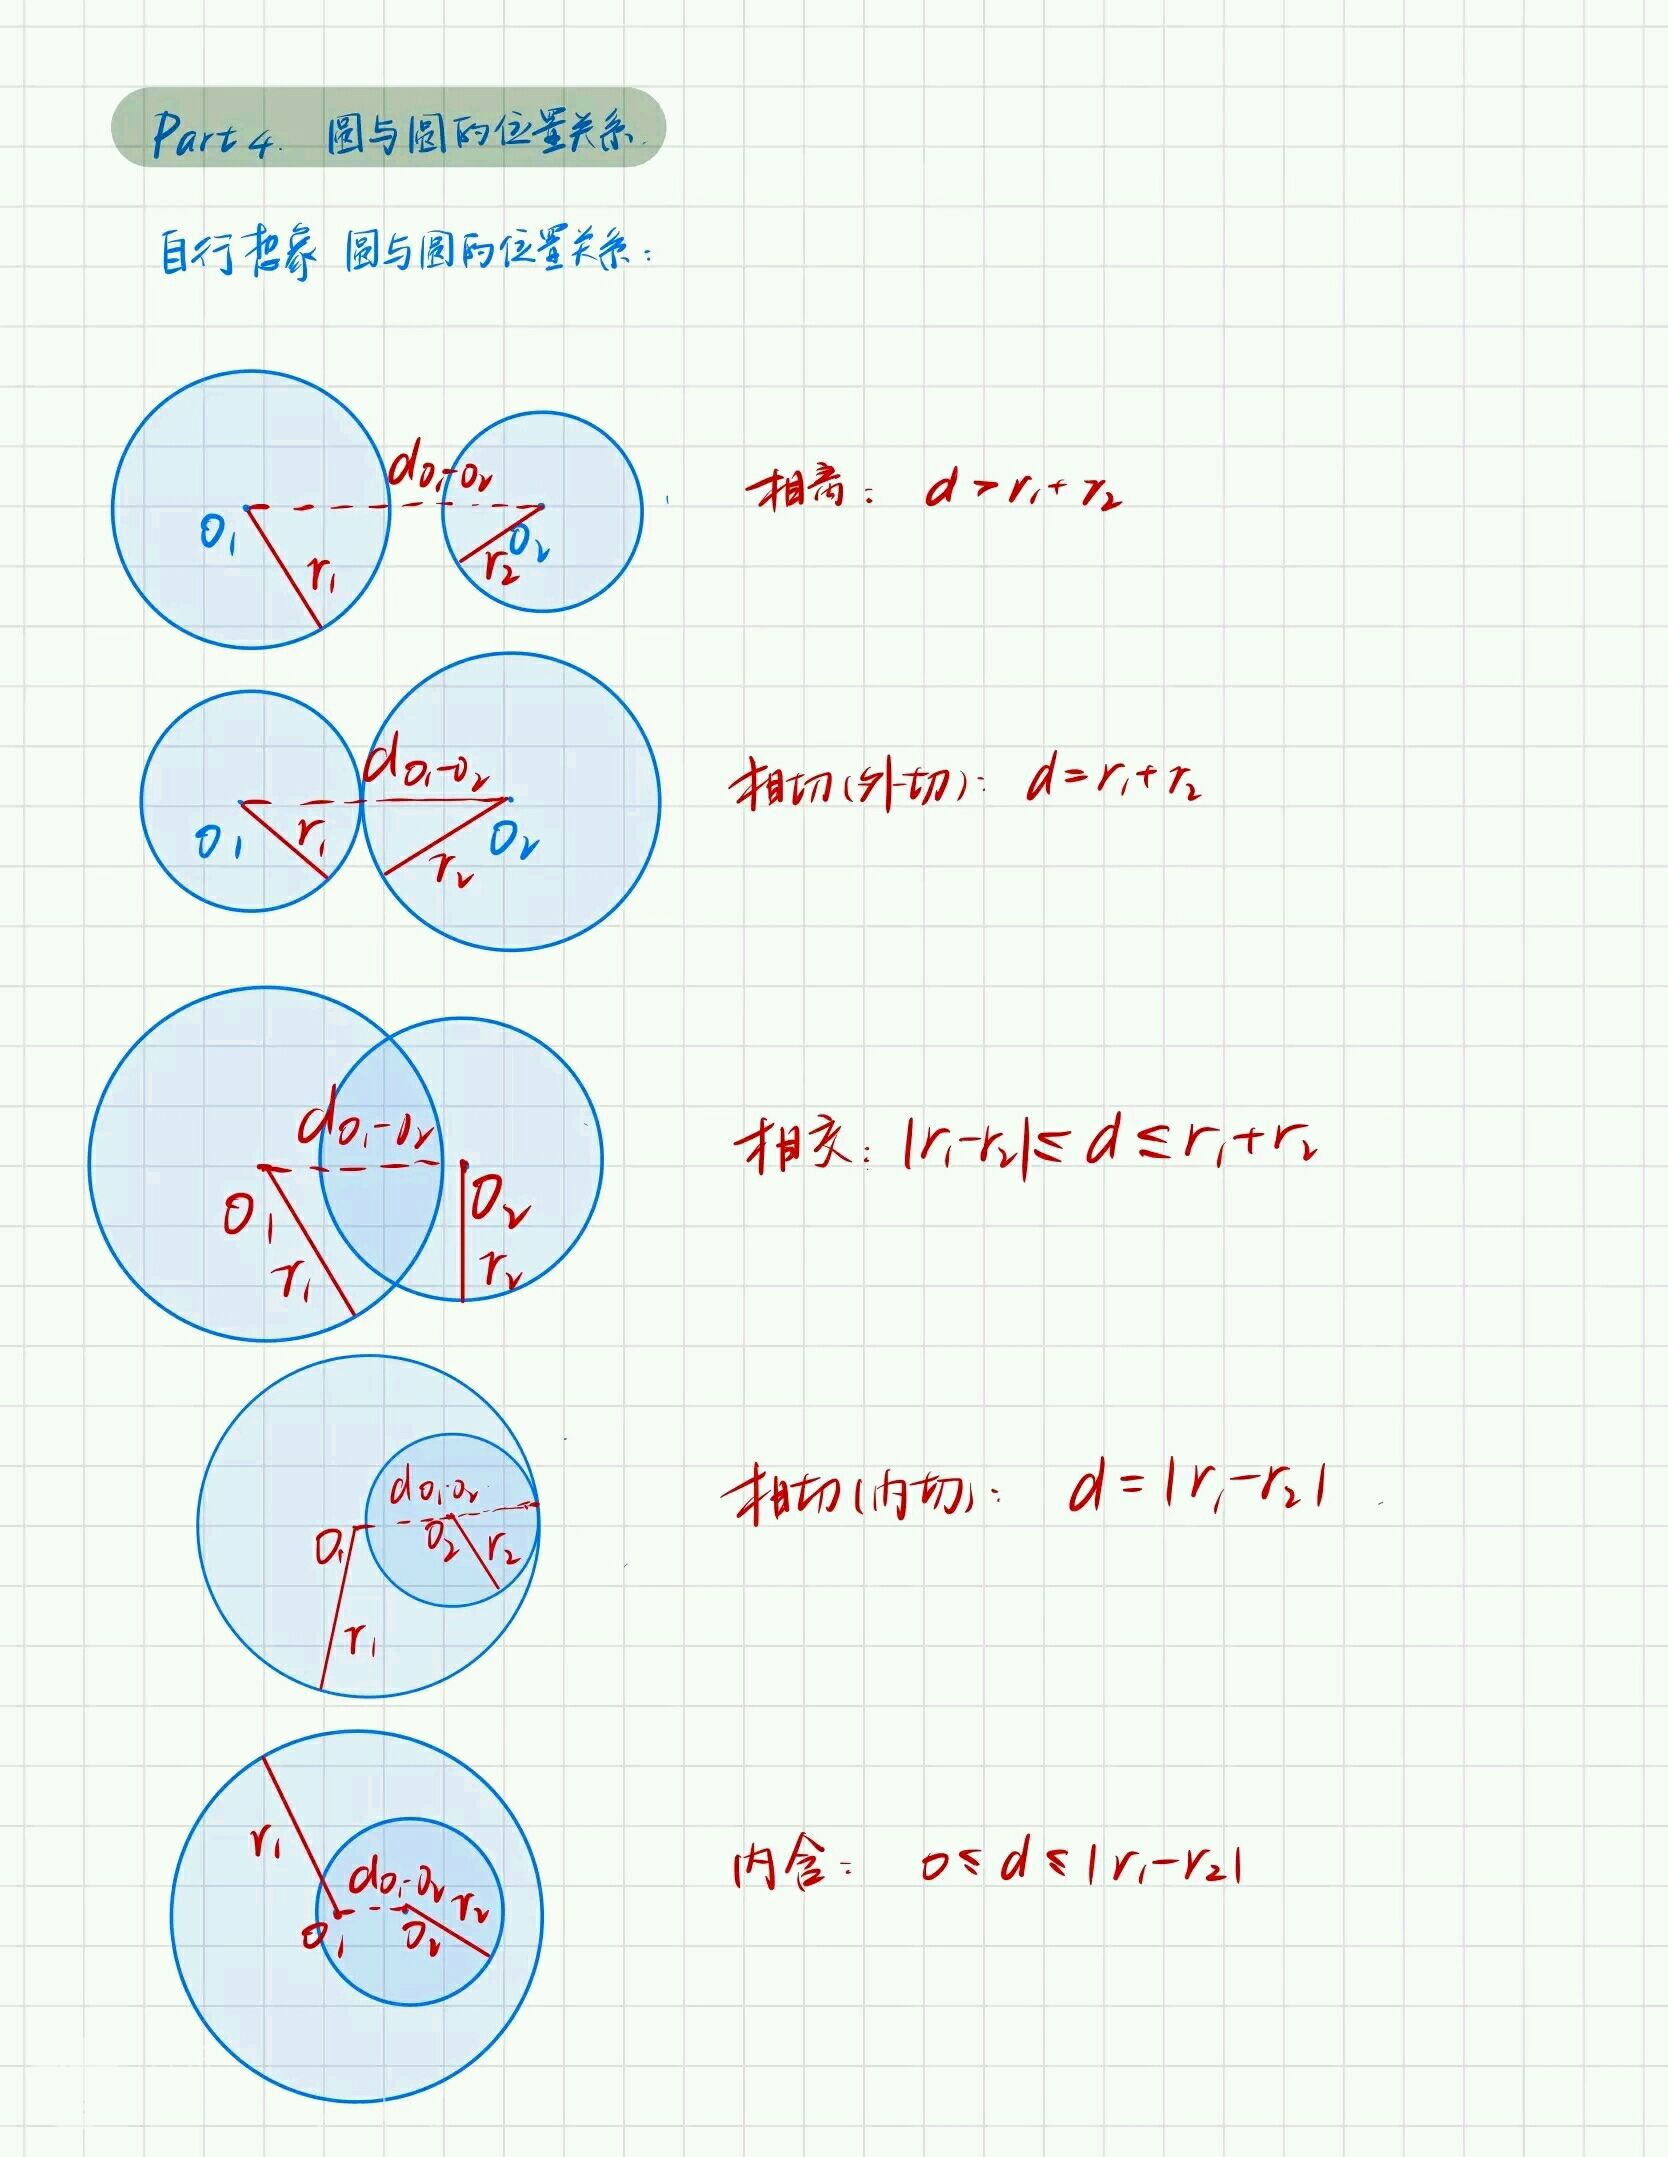 Part 4. 圆与圆的位置关系.
自行想象 圆与圆的位置关系:
d₀₁-₀₂
O₁
r₁
O₂
r₂
相离: d > r₁ + r₂
d₀₁-₀₂
O₁
r₁
O₂
r₂
相切(外切): d = r₁ + r₂
d₀₁-₀₂
O₁
r₁
O₂
r₂
相交: |r₁-r₂| ≤ d ≤ r₁+r₂
d₀₁-₀₂
O₁
O₂
r₂
r₁
相切(内切): d = |r₁-r₂|
r₁
d₀₁-₀₂
r₂
O₁
O₂
内含: 0 ≤ d ≤ |r₁-r₂|